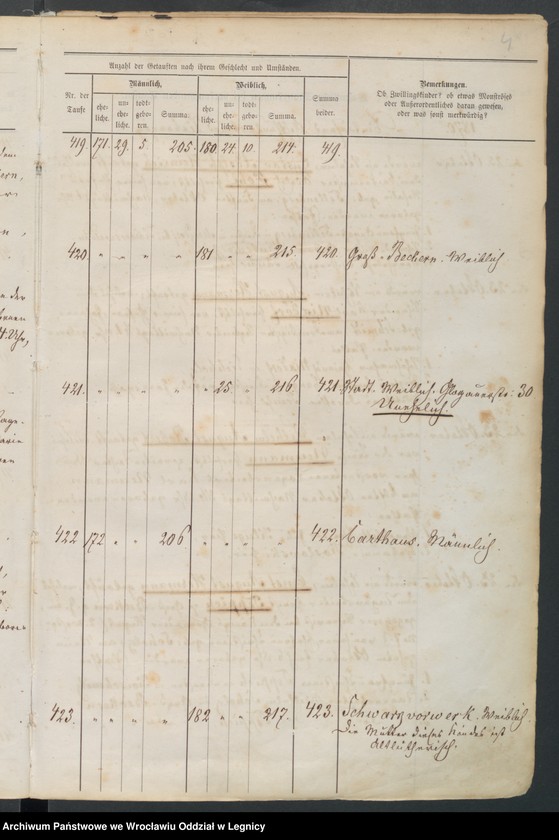 4
Anzahl der Getauften nach ihrem Geschlecht und Umständen.
Nr. der Taufe
Männlich,
Weiblich,
ehe-liche.
un-ehe-liche.
todt-gebo-ren.
Summa:
ehe-liche.
un-ehe-liche.
todt-gebo-ren.
Summa.
Summa beider.
Bemerkungen.
Ob Zwillingskinder? ob etwas Monströses
oder Außerordentliches daran gewesen,
oder was sonst merkwürdig?
419. 171. 29. 5. 205. 180. 24. 10. 214. 419.
420 " " " " 181 " " 215. 420. Groß-Beckern. Weiblich
421. " " " " " 25. " 216. 421. Stadt. Weiblich. Glogauerstr: 30
Unehelich.
422 172 " " 206 " " " " 422. Carthaus. Männlich.
423. " " " " 182 " " 217. 423. Schwarzvorwerk. Weiblich.
Die Mutter dieses Kindes ist
altlutherisch.
Archiwum Państwowe we Wrocławiu Oddział w Legnicy